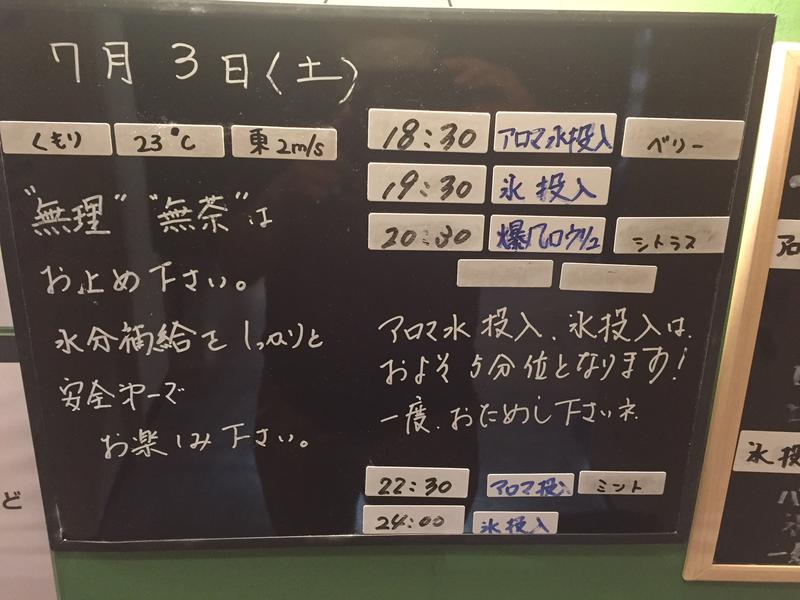 7月3日(土)
くもり 23℃ 東2m/s
"無理" "無茶"は
お止め下さい。
水分補給をしっかりと
安全第一で
お楽しみ下さい。
18:30 アロマ水投入 ベリー
19:30 氷投入
20:30 爆アロウリュ シトラス
アロマ水投入、氷投入は、
およそ5分位となります!
一度、おためし下さいネ
22:30 アロマ投入 ミント
24:00 氷投入
ど
氷投